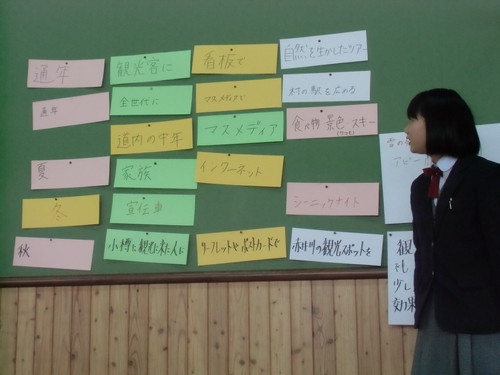 通年
観光客に
看板で
自然を生かしたツアー
通年
全世代に
マスメディアで
村の駅を広める
道内の中年
マスメディア
食べ物 景色 スキー
夏
家族
インターネット
冬
宣伝由
シーニックナイト
秋
小樽に観光に来た人に
リーフレットやポストカードで
赤井川の観光スポットを
雪の
アピー
観
光
少し
効果